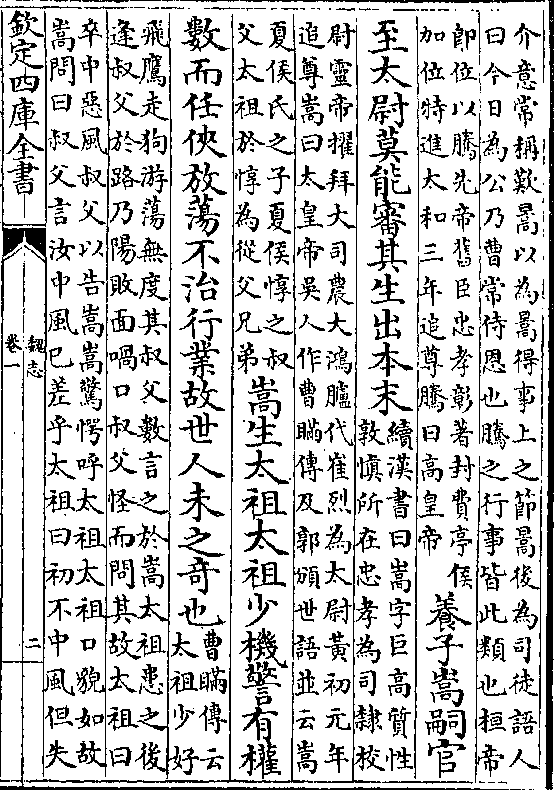 介意常稱歎暠以為暠得事上之節暠後為司徒語人
曰今日為公乃曹常侍恩也騰之行事皆此類也桓帝
即位以騰先帝舊臣忠孝彰著封費亭侯
加位特進太和三年追尊騰曰高皇帝
養子嵩嗣官
至太尉莫能審其生出本末
續漢書曰嵩字巨高質性
敦慎所在忠孝為司隸校
尉靈帝擢拜大司農大鴻臚代崔烈為太尉黃初元年
追尊嵩曰太皇帝吳人作曹瞞傳及郭頒世語並云嵩
夏侯氏之子夏侯惇之叔
父太祖於惇為從父兄弟
嵩生太祖太祖少機警有權
數而任俠放蕩不治行業故世人未之奇也
曹瞞傳云
太祖少好
飛鷹走狗游蕩無度其叔父數言之於嵩太祖患之後
逢叔父於路乃陽敗面喎口叔父怪而問其故太祖曰
卒中惡風叔父以告嵩嵩驚愕呼太祖太祖口貌如故
嵩問曰叔父言汝中風已差乎太祖曰初不中風但失
欽定四庫全書
魏志
卷一
二